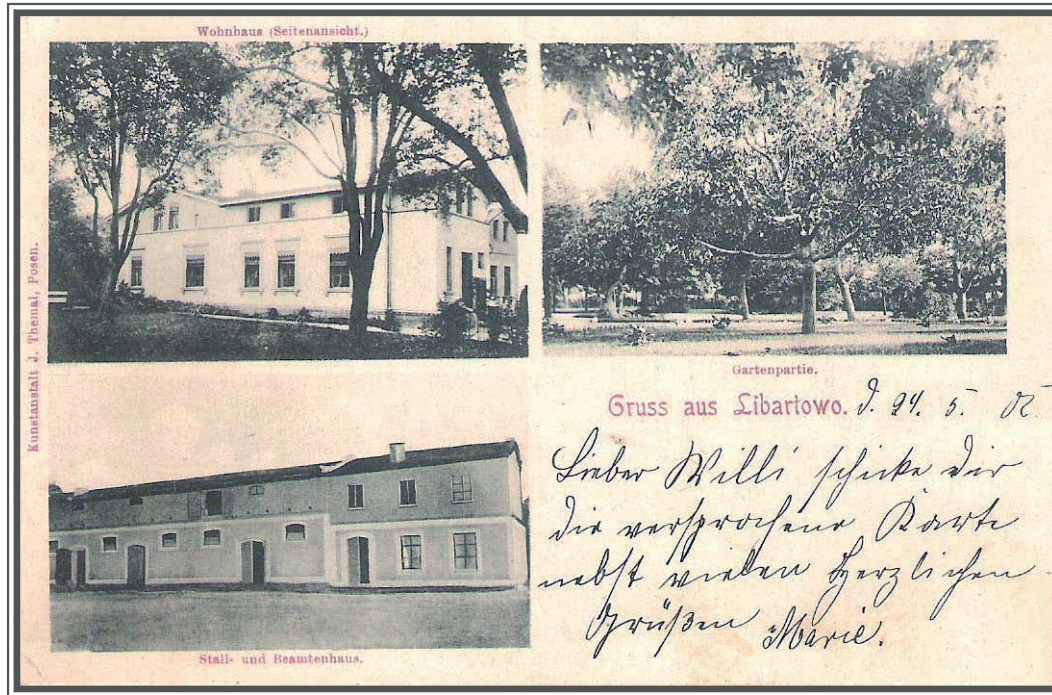 Wohnhaus (Seitenansicht.)
Kunstanstalt J. Themal, Posen.
Gartenpartie.
Gruss aus Libartowo. d. 24. 5. 02
Lieber Willi schicke dir
die versprochene Karte
nebst vielen Herzlichen
Grüßen Marie.
Stall- und Beamtenhaus.